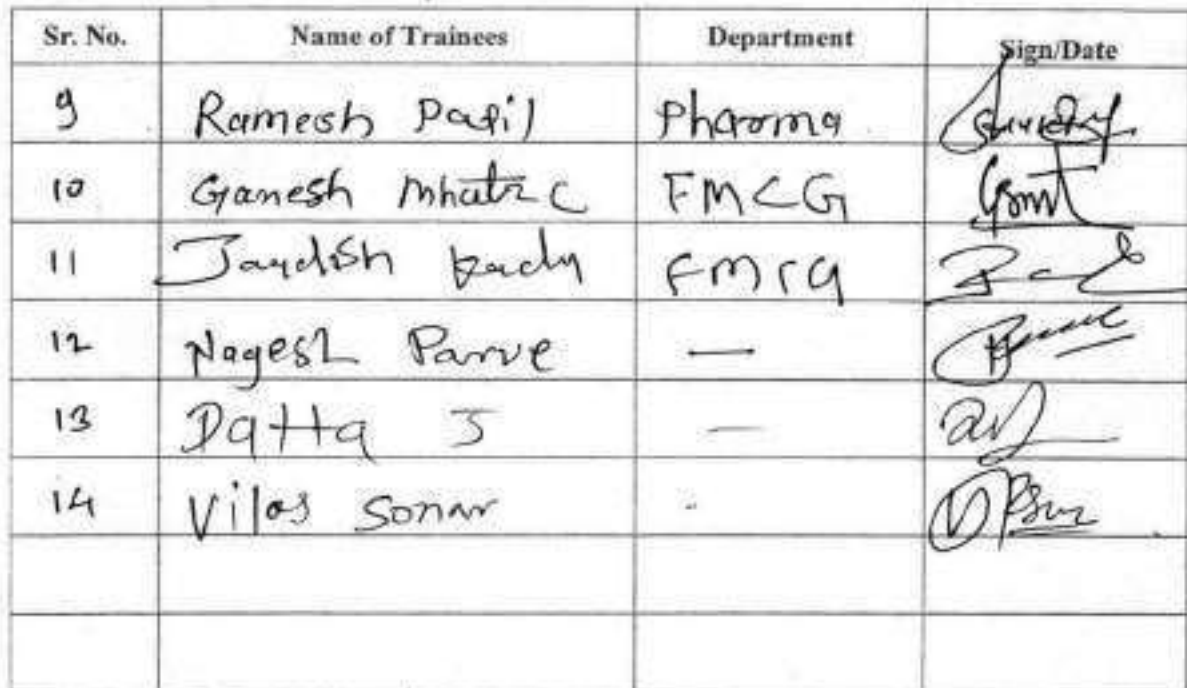 Sr. No. Name of Trainees Department Sign/Date
9 Ramesh Patil Pharma
10 Ganesh Mhatre FMCG
11 FMCG
12 Nagesh Parve —
13 Datta J —
14 Vilas Sonar